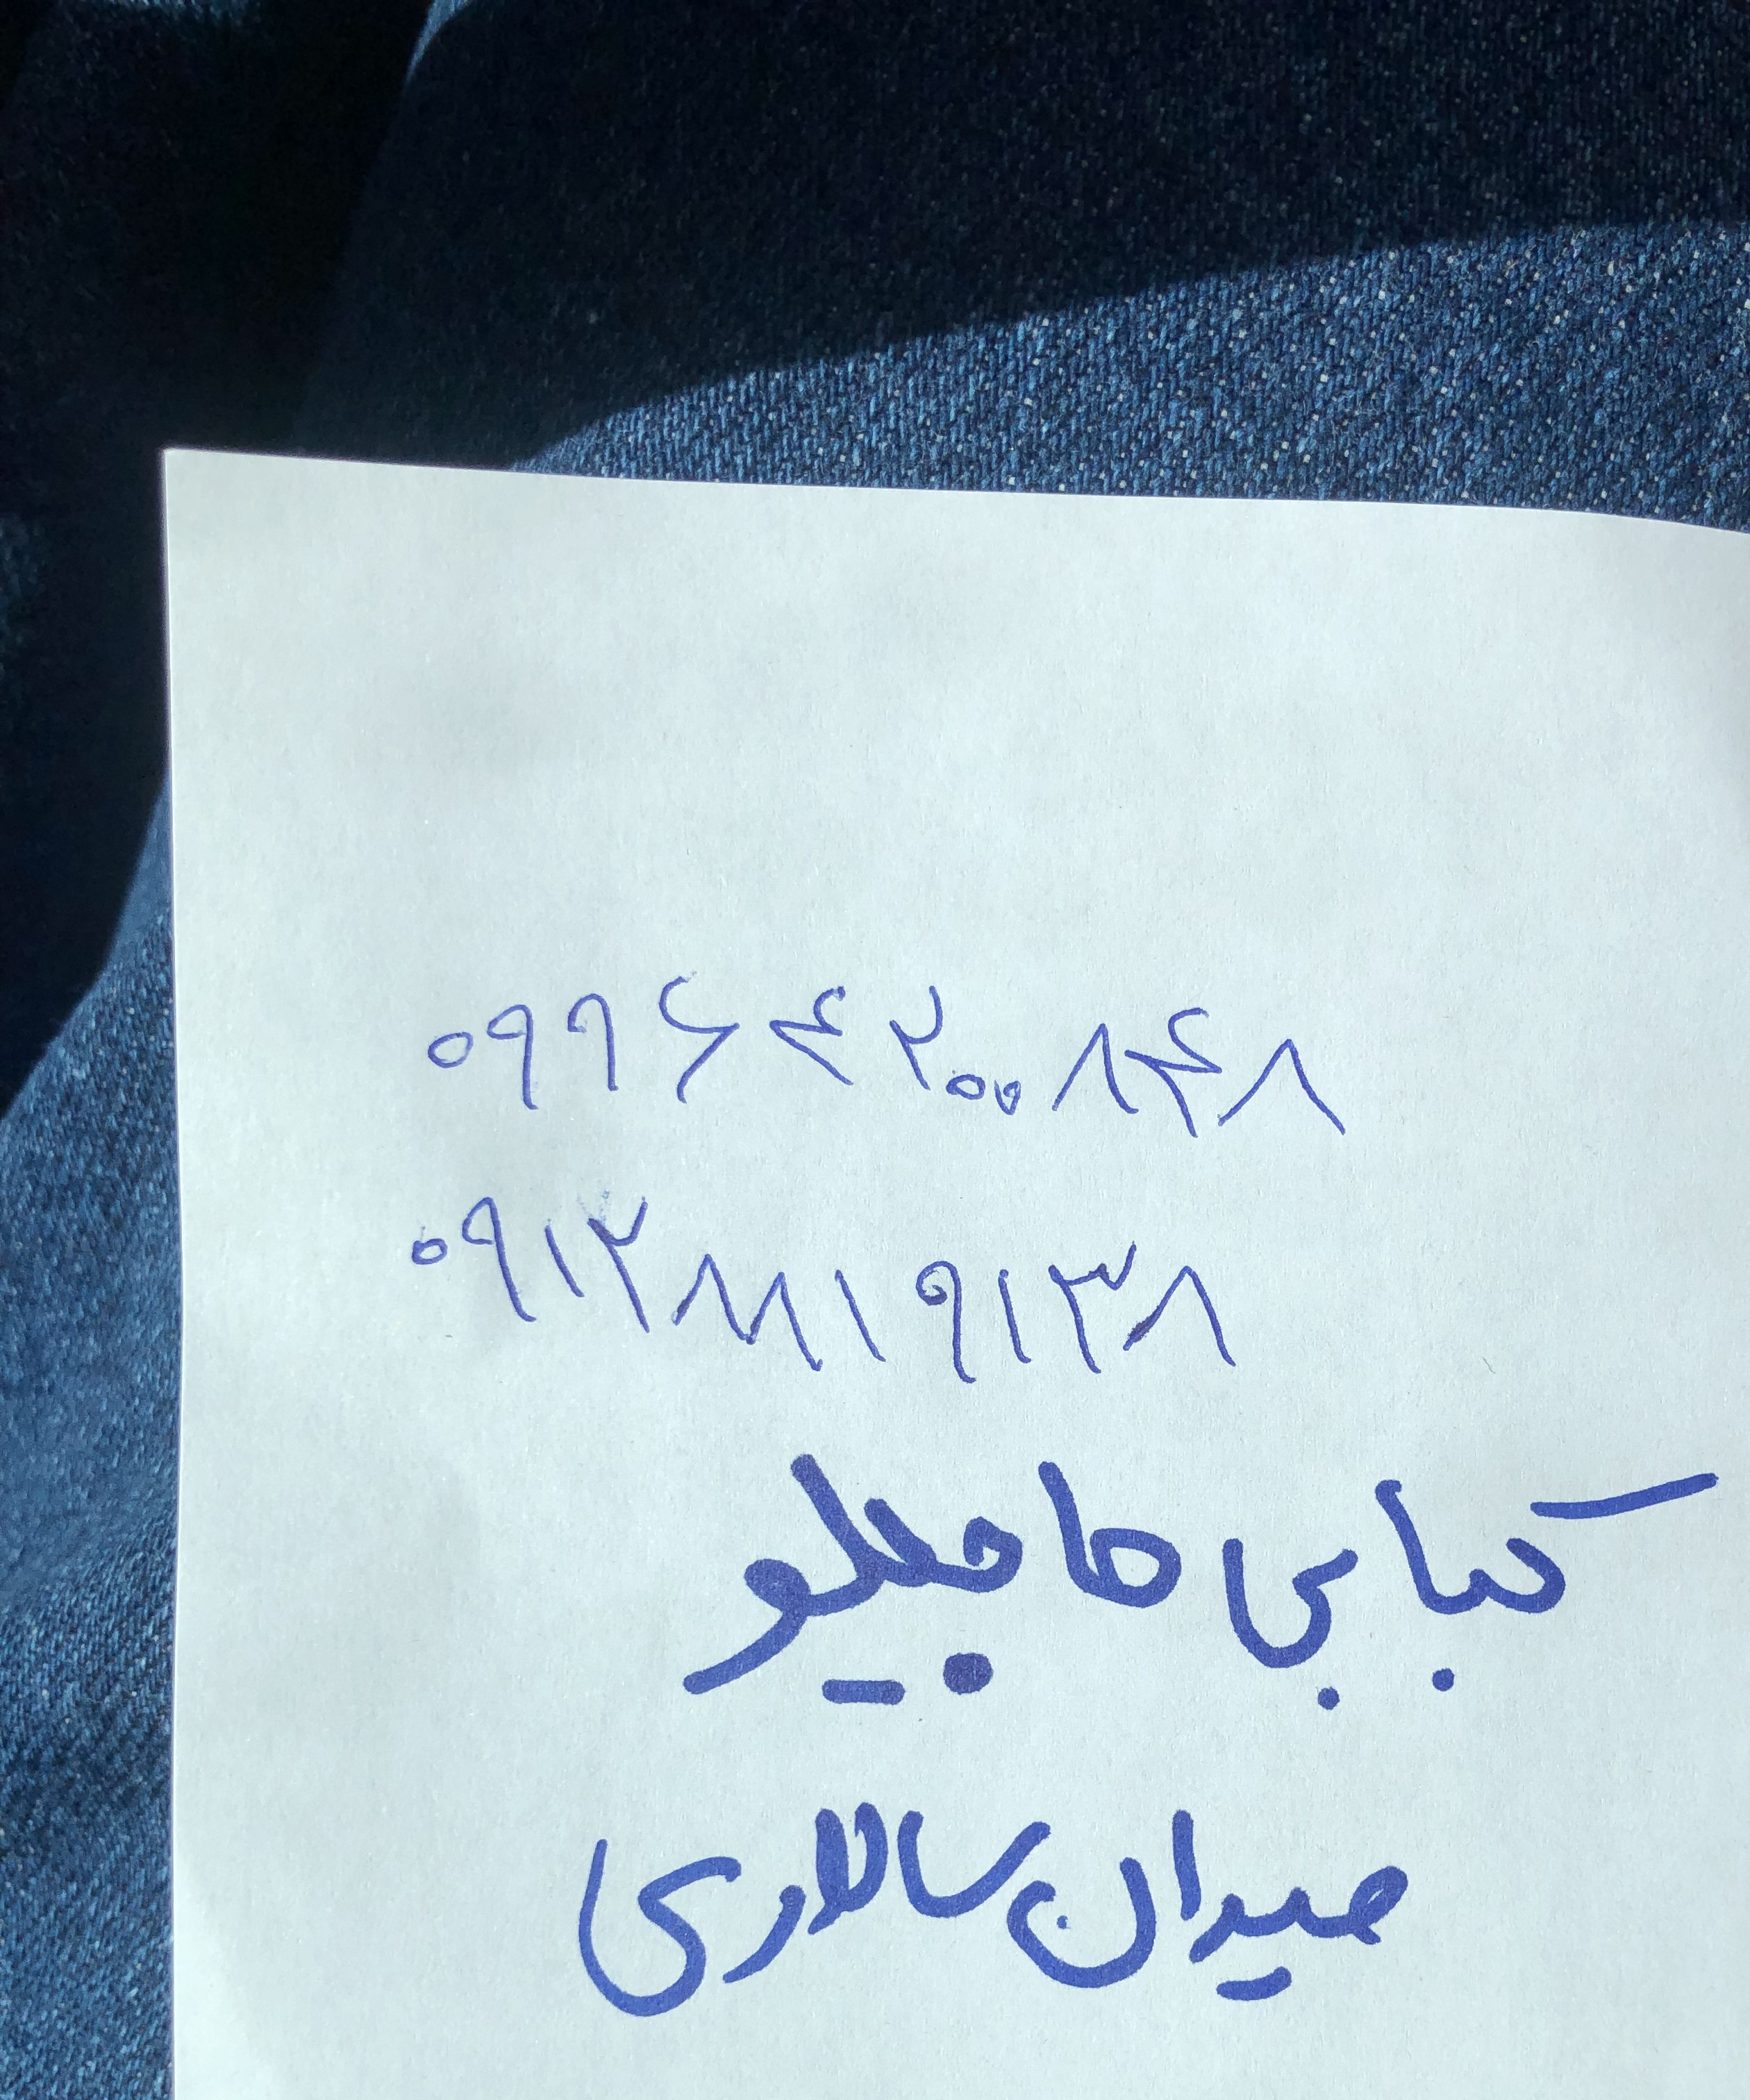 ۰۹۹۶۴۲۰۰۸۴۸
۰۹۱۲۸۸۱۹۱۳۸
کبابی حاجیلو
میدان سالاری